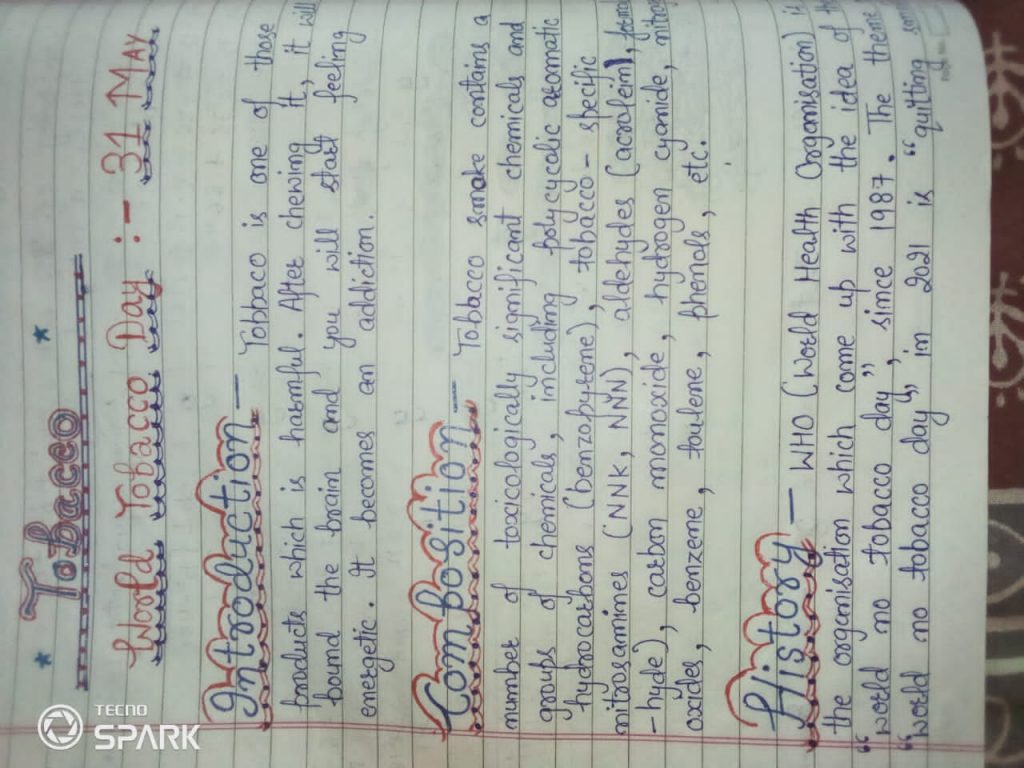 Tobacco
World Tobacco Day :- 31 May
Introduction - Tobbaco is one of those
products which is harmful. After chewing it, it will
bound the brain and you will start feeling
energetic. It becomes an addiction.
Composition - Tobacco smoke contains a
number of toxicologically significant chemicals and
groups of chemicals, including polycyclic atomatic
hydrocarbons (benzopyrene), tobacco - specific
nitrosamines (NNK, NNN), aldehydes (acrolein), formal
-hyde), carbon monoxide, hydrogen cyanide, nitrog
oxides, benzene, toulene, phenols, etc.
History - WHO (World Health Organisation) is
the organisation which come up with the idea of the
"world no tobacco day", since 1987. The theme
"world no tobacco day" in 2021 is "quitting
TECNO
SPARK